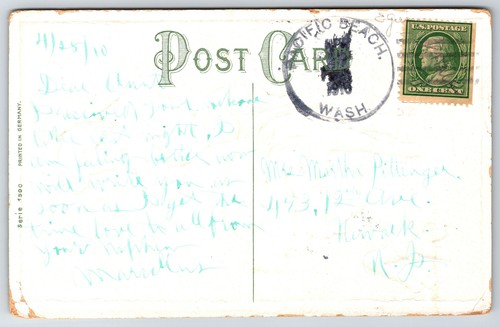 4/25/10
POST CARD
PACIFIC BEACH,
1910
WASH.
U.S. POSTAGE
ONE CENT
Dear Aunt
received your
last night. I
am feeling better now
will write you as
soon as I get the
time love to all from
your nephew
Marcellus
Mrs Martha Pittenger
493, 12th Ave.
Newark
N. J.
Serie 1300 PRINTED IN GERMANY.